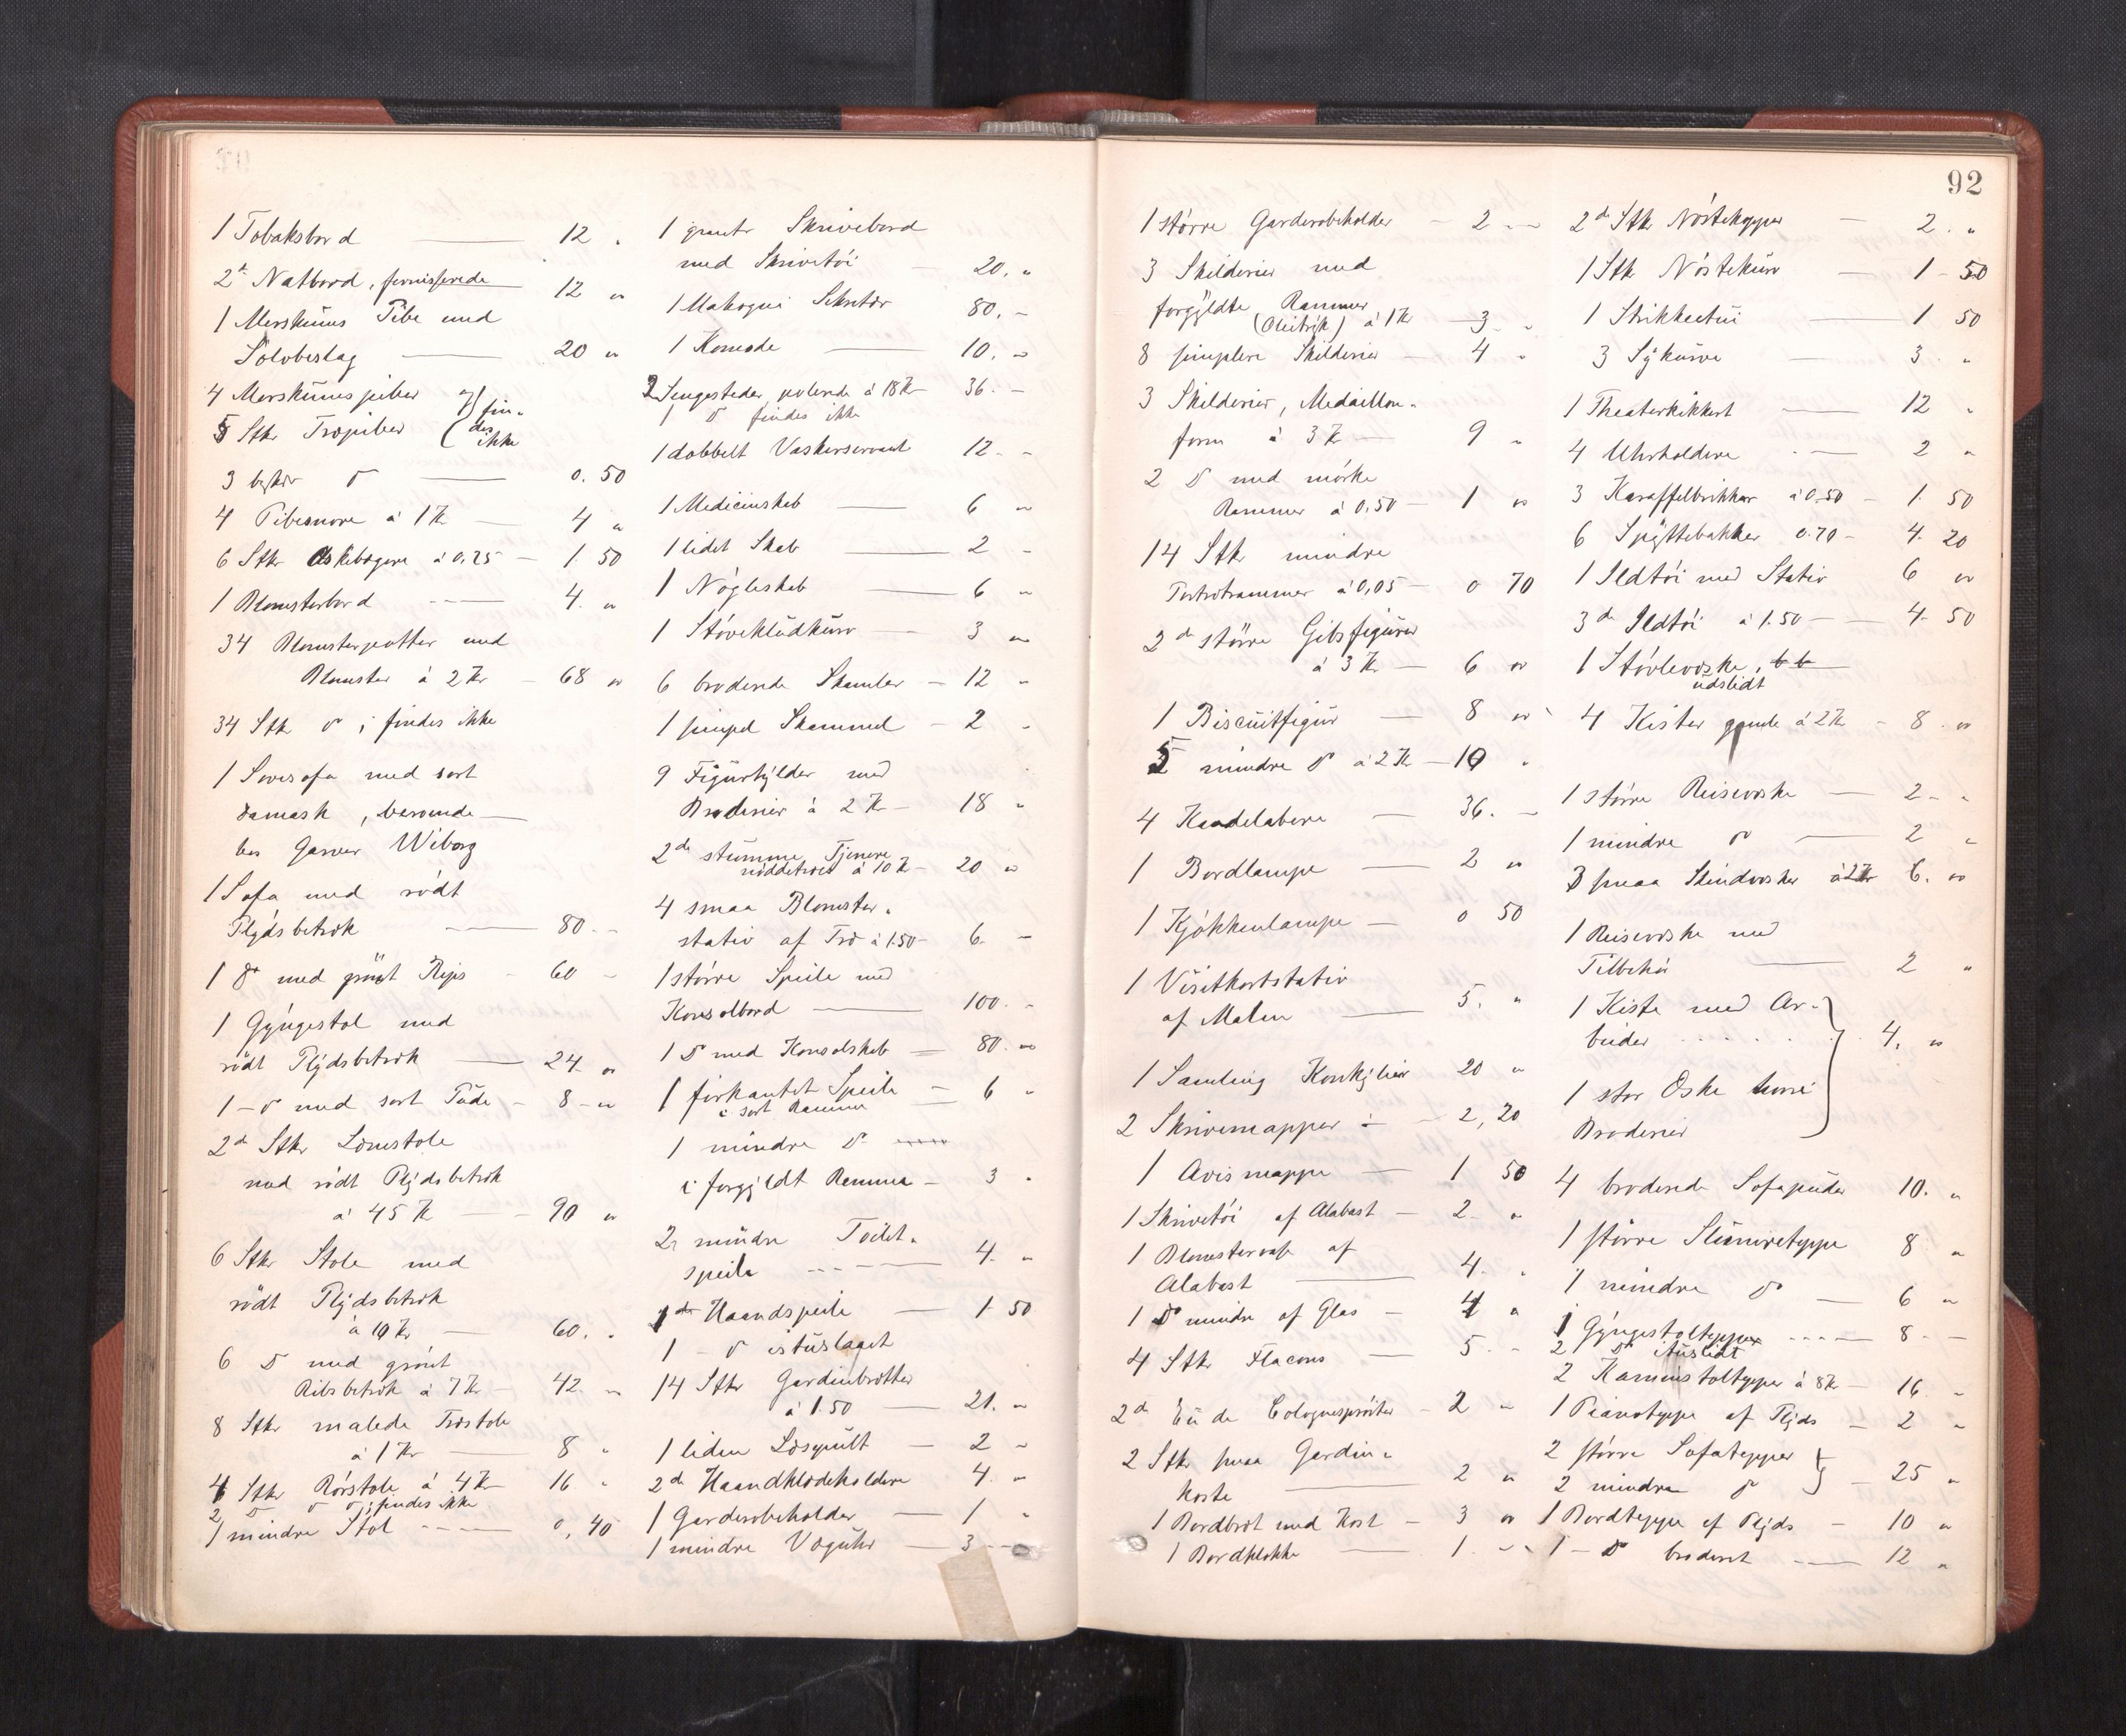 1 Tobaksbord — 12 "
2de Natbord, fernisserede 12 "
1 Merskums Pibe med
Sølvbeslag — 20 "
4 Merskumspiber } fin-
5 Stkr Træpiber ( des ikke
3 — 0. 50
4 Pibesnore à 1 Kr — 4 "
6 Stkr Askebægere à 0,25 — 1. 50
1 Blomsterbord — 4. "
34 Blomsterpotter med
Blomster à 2 Kr — 68 "
34 Stk do ; findes ikke
1 Sovesofa med sort
Damask , beroende —
hos Garver Wiborg
1 Sofa med rødt
Plydsbetræk — 80. -
1 do med grønt Rips - 60 -
1 Gyngestol med
rødt Plydsbetræk — 24. "
1 - do med sort - 8 - "
2de Stkr Lænestole
med rødt Plydsbetræk
à 45 Kr — 90 "
6 Stkr Stole med
rødt Plydsbetræk
à 10 Kr — 60. "
6 do med grønt
Ribsbetræk à 7 Kr - 42. "
8 Stkr malede Træstole
à 1 Kr — 8 "
4 Stkr Rørstole à 4 Kr 16 "
2 do do do ; findes ikke
1 mindre Stol - - - 0, 40
1 Skrivebord
med Skrivetøi - 20. "
1 Mahogni Sekretær 80. -
1 Komode — 10. "
2 Sengesteder, polerede à 18 Kr - 36. -
1 do findes ikke
1 dobbelt Vaskerservant 12. -
1 Medicinskab — 6 "
1 lidet Skab — 2 -
1 Nøgleskab — 6 "
1 Støvekludkurv — 3 "
6 broderede Skamler - 12 "
1 simpel Skammel - 2 -
9 Figurhylder med
Broderier à 2 Kr - 18 "
2de stumme Tjenere
nøddetræs à 10 Kr - 20 "
4 smaa Blomster-
stativ af Træ à 1.50 - 6. -
1 større Speile med
Konsolbord — 100. -
1 do med Konsolskab — 80. "
1 firkantet Speile — 6 "
i sort Ramme
1 mindre do
i forgyldt Ramme - 3 "
2 mindre Toilet-
speile - - - 4. "
1 Haandspeile — 1. 50
1 - do istuslaget
14 Stkr Gardinbrætter
à 1.50 — 21. "
1 liden Læsepult - 2 "
2de Haandklædeholdere 4. "
1 Garderobeholder — 1 "
1 mindre Væguhr — 3 - -
92
1 større Garderobeholder - 2 - -
3 Skilderier med
forgyldte Rammer
(Olietryk) à 1 Kr — 3. "
8 simplere Skilderier — 4 "
3 Skilderier, Medaillon-
form à 3 Kr — 9 "
2 do med mørke
Rammer à 0,50 — 1 "
14 Stkr mindre
Portrætrammer à 0,05 — 0 70
2de større Gibsfigurer
à 3 Kr — 6 "
1 Biscuitfigur — 8 "
5 mindre do à 2 Kr — 10 "
4 Kandelabere — 36. -
1 Bordlampe — 2 "
1 Kjøkkenlampe — 0 50
1 Visitkortstativ
af Malm — 5. "
1 Samling Konkylier 20 "
2 Skrivemapper - 2, 20
1 Avismappe — 1 50
1 Skrivetøi af Alabast — 2. "
1 Blomstervase af
Alabast — 4. "
1 do mindre af Glas — 4 "
4 Stkr Flacons — 5. -
2de Eau de Colognesprøiter - 2 "
2 Stkr smaa Gardin-
koste — 2 "
1 Bordbræt med Kost - 3 "
1 Bordklokke — 1. -
2de Stk Nøstekopper — 2. "
1 Stk Nøstekurv — 1 - 50
1 Strikkeetui — 1 50
3 Sykurve — 3 "
1 Theaterkikkert — 12 "
4 Uhrholdere - — 2 "
3 Karaffelbrikker à 0.50 - 1. 50
6 Spyttebakker 0.70 - 4. 20
1 Ildtøi med Stativ 6 "
3de Ildtøi à 1.50 — 4. 50
1 Støvlevæske,
udslidt
4 Kister à 2 Kr - 8. "
1 større Reisevæske — 2 - "
1 mindre do — 2 "
3 smaa Skindvæsker à 2 Kr 6. "
1 Reisevæske med
Tilbehør — 2 "
1 Kiste med Ar-
beider . . . . . } 4. "
1 stor Æske
Broderier
4 broderede Sofapuder 10. "
1 større Slumretæppe 8 "
1 mindre do — 6 "
1 Gyngestoltæppe - - - 8. -
2 do udslidt
2 Kaminstoltæpper à 8 Kr - 16 -
1 Pianotæppe af Plyds — 2 "
2 større Sofatæpper }
2 mindre do } — 25 "
1 Bordtæppe af Plyds — 10 "
1 - do broderet — 12 "